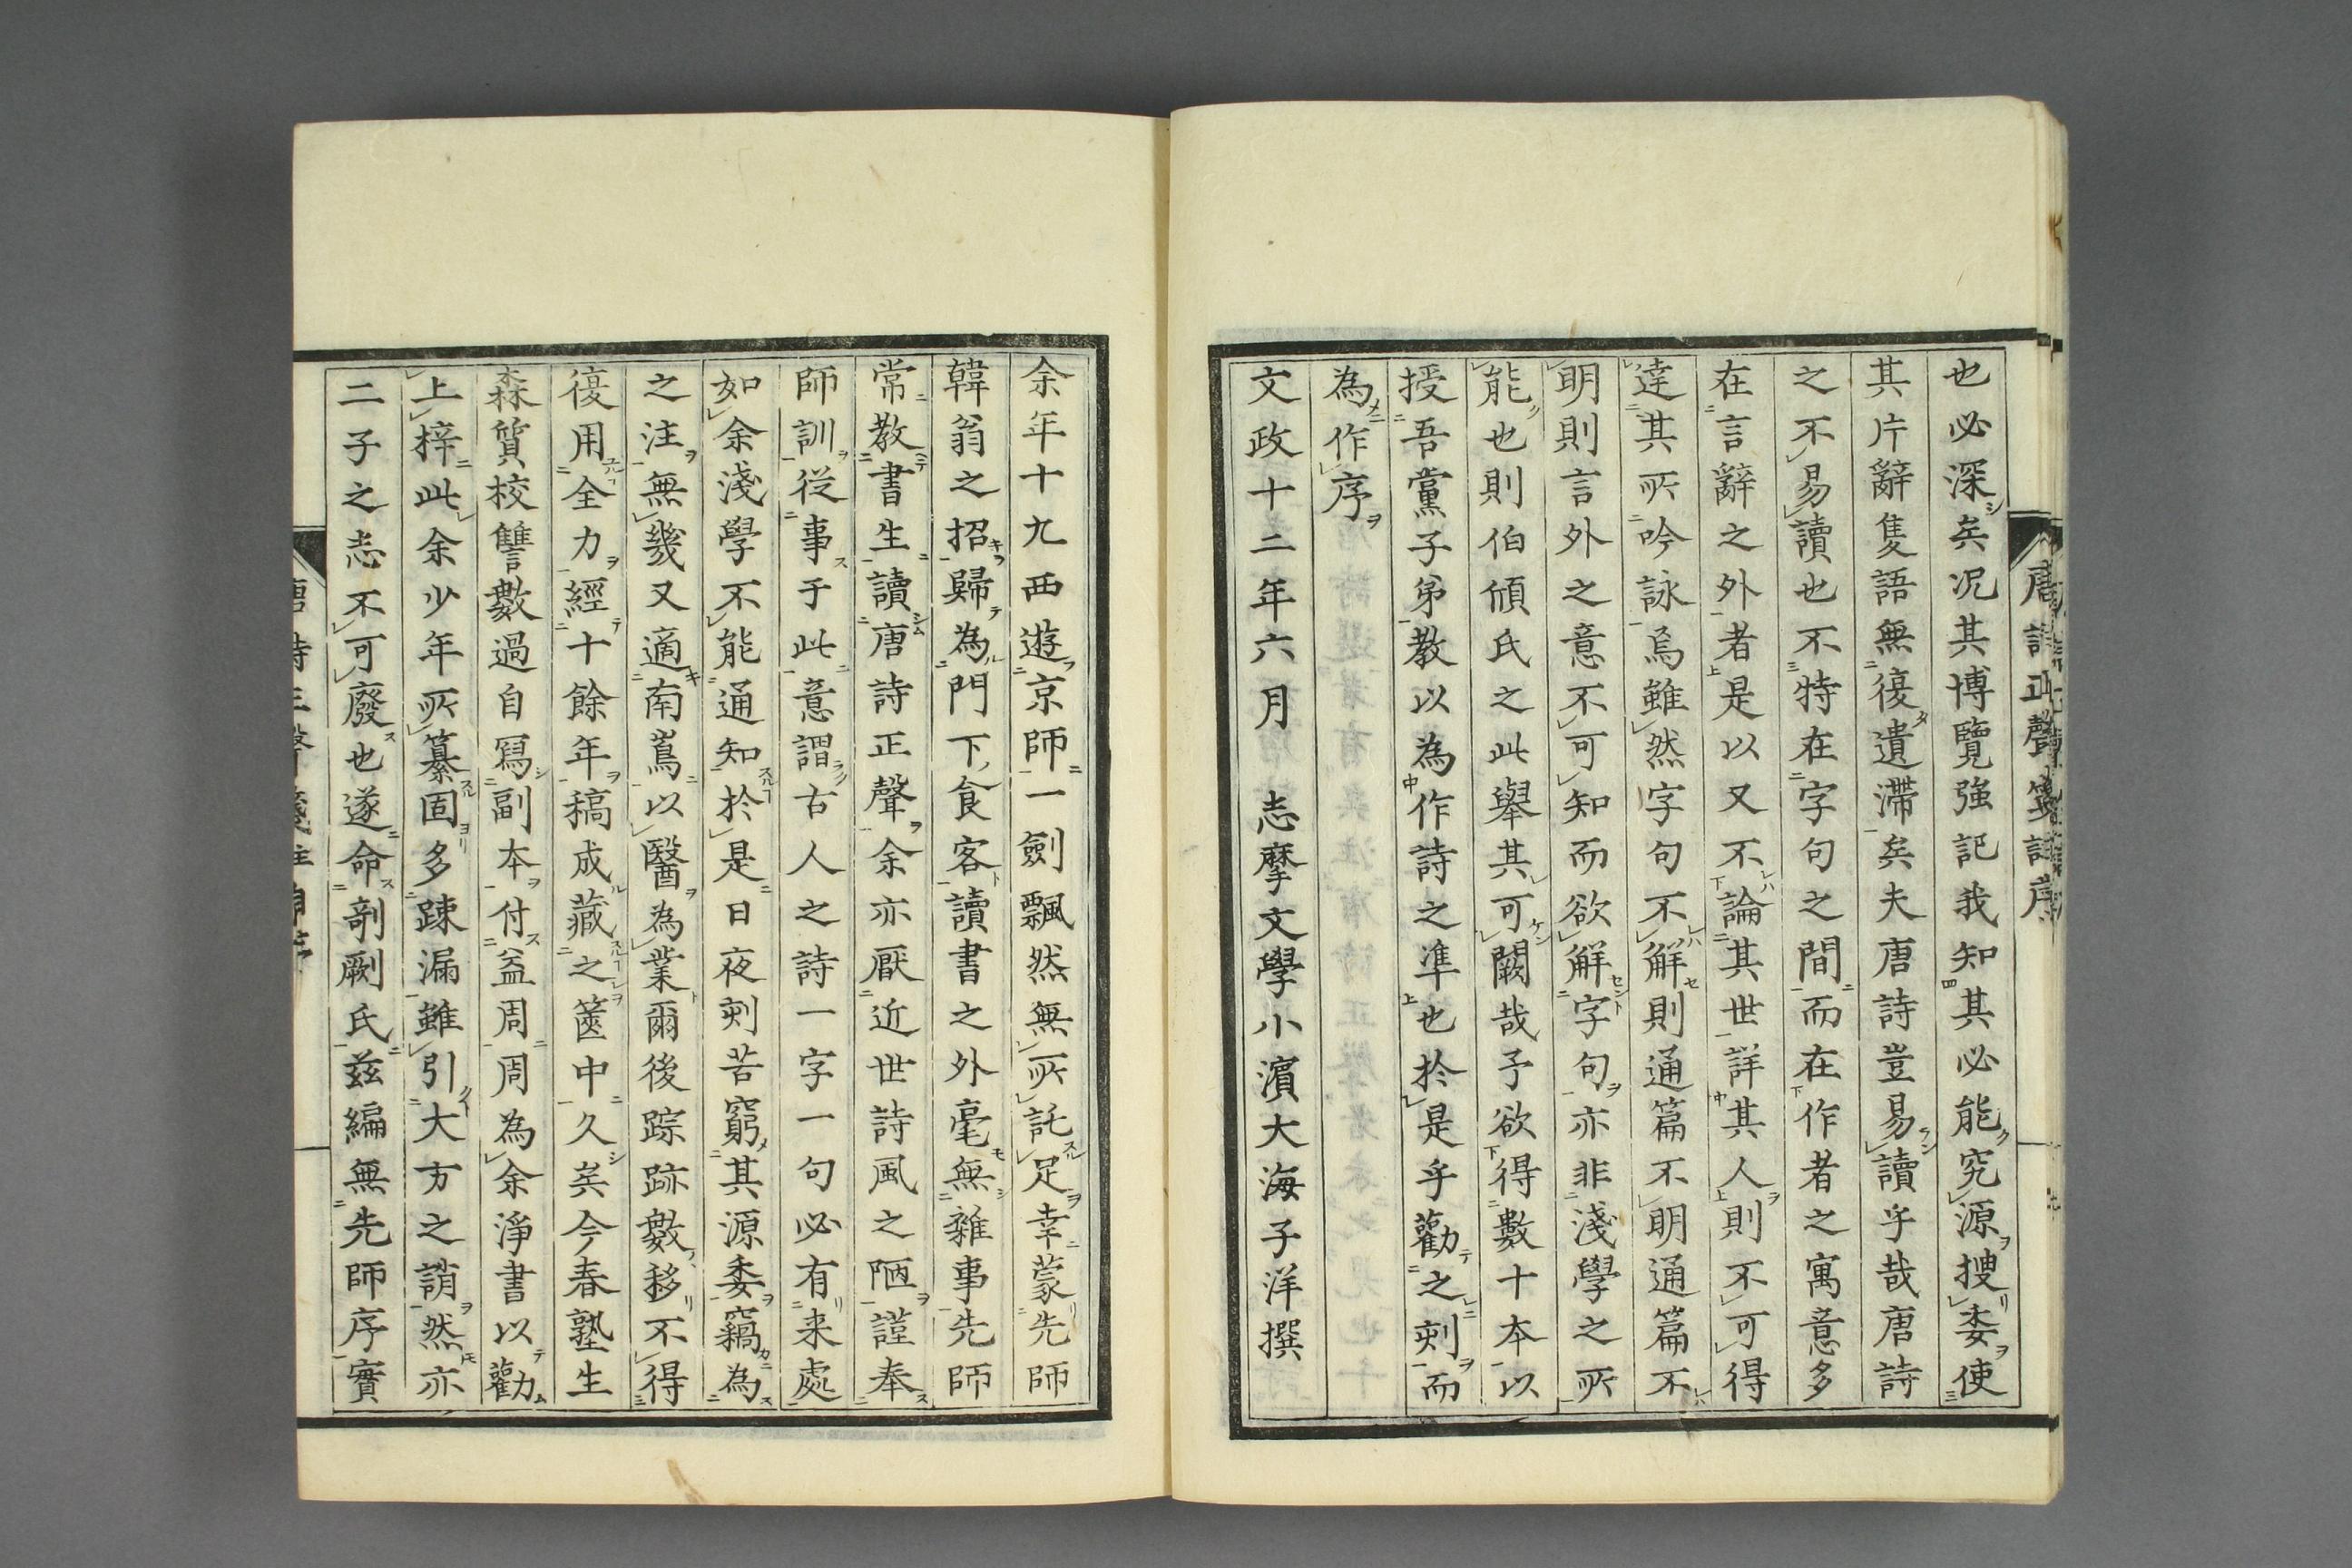 也必深矣況其博覽強記我知其必能究源搜委使
其片辭隻語無復遺滯矣夫唐詩豈易讀乎哉唐詩
之不易讀也不特在字句之間而在作者之寓意多
在言辭之外者是以又不論其世詳其人則不可得
達其所吟詠焉雖然字句不解則通篇不明通篇不
明則言外之意不可知而欲解字句亦非淺學之所
能也則伯傾氏之此舉其可闕哉予欲得數十本以
授吾黨子弟教以為作詩之準也於是乎勸之刻而
為作序
文政十二年六月 志摩文學小濱大海子洋撰
余年十九西遊京師一劍飄然無所託足幸蒙先師
韓翁之招歸為門下食客讀書之外毫無雜事先師
常教書生讀唐詩正聲余亦厭近世詩風之陋謹奉
師訓從事于此意謂古人之詩一字一句必有来處
如余淺學不能通知於是日夜刻苦窮其源委竊為
之注無幾又適南嶌以醫為業爾後踪跡數移不得
復用全力經十餘年稿成藏之篋中久矣今春塾生
森質校讐數過自寫副本付益周周為余淨書以勸
上梓此余少年所纂固多踈漏雖引大方之誚然亦
二子之志不可廢也遂命剞劂氏玆編無先師序實